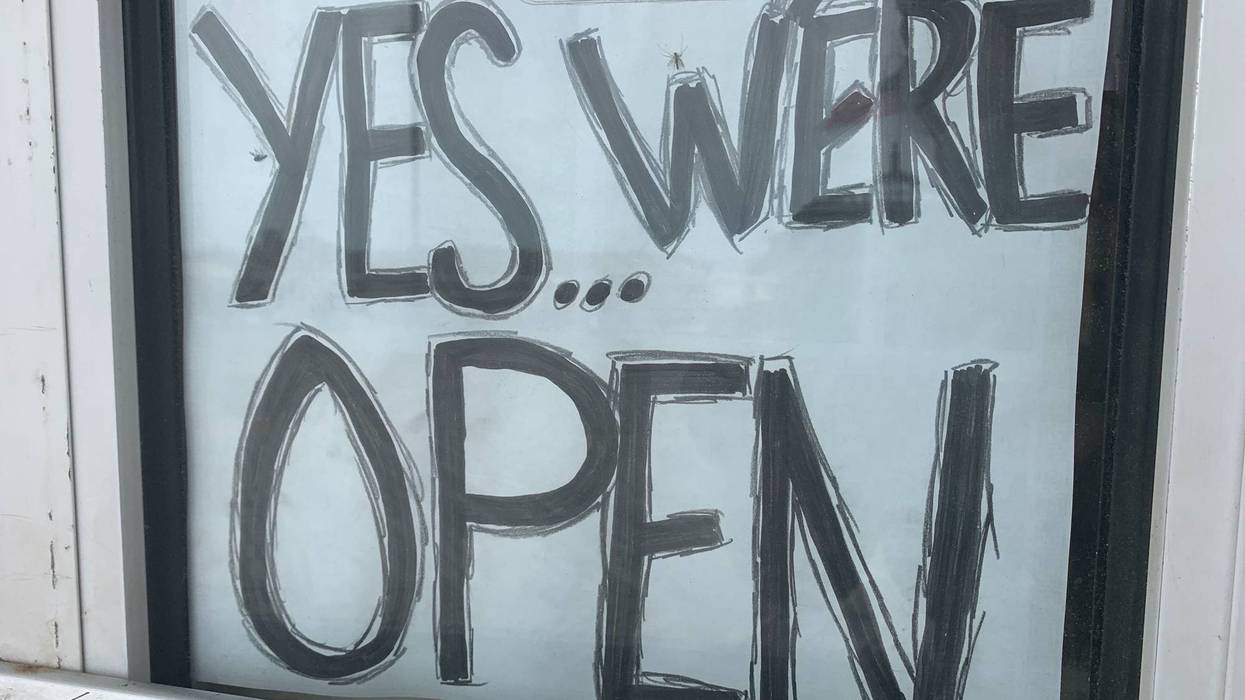 YES... WERE
OPEN